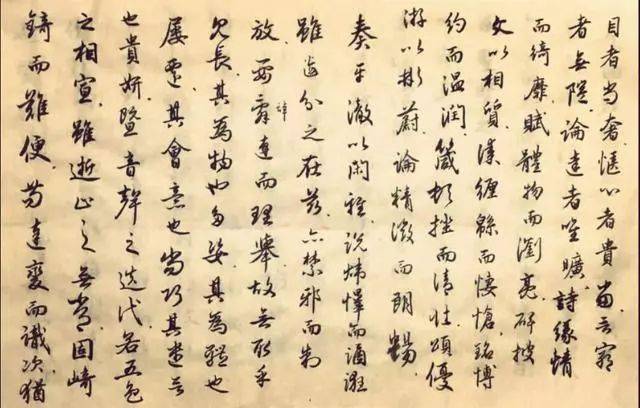 目者尚奢愜心者貴當言窮
者無隘論達者唯曠詩緣情
而綺靡賦體物而瀏亮碑披
文以相質誄纏綿而悽愴銘博
約而溫潤箴頓挫而清壯頌優
游以彬蔚論精微而朗暢
奏平徹以閑雅說煒曄而譎誑
雖區分之在茲亦禁邪而制
放要辭達而理舉故無取乎
冗長其為物也多姿其為體也
屢遷其會意也尚巧其遣言
也貴妍暨音聲之迭代若五色
之相宣雖逝止之無常固崎
錡而難便苟達變而識次猶